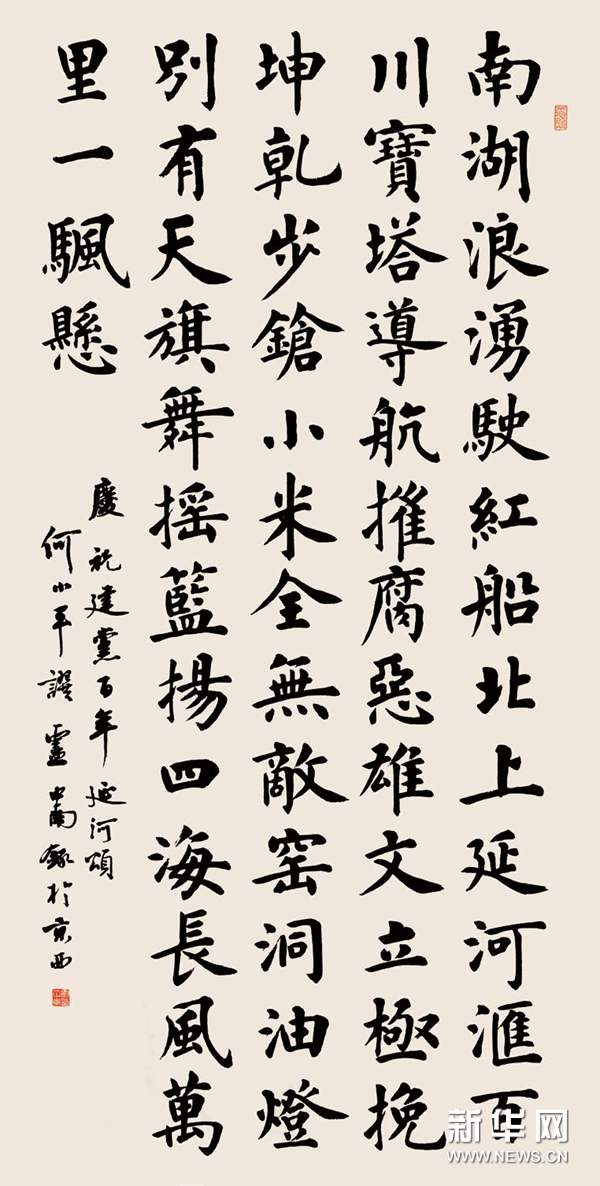 南湖浪湧駛紅船北上延河滙百
川寶塔導航摧腐惡雄文立極挽
坤乾步鎗小米全無敵窑洞油燈
別有天旗舞摇籃揚四海長風萬
里一颿懸
慶祝建黨百年延河頌
何小平譔盧中南録於京西
新华网
WWW.NEWS.CN